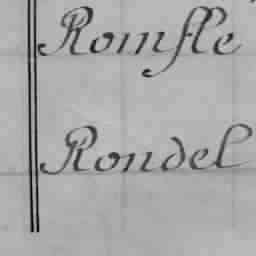 Romfle
Rondel